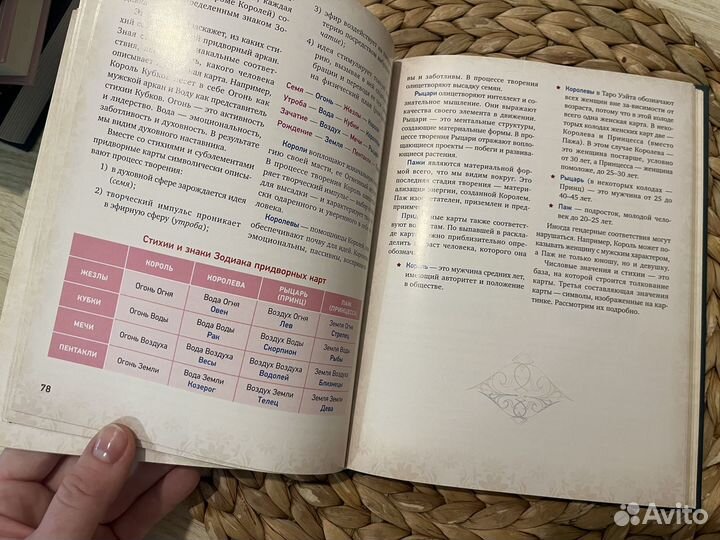 каждая
роме Королей) со-
пределенным знаком Зо-
расскажет, из каких сти-
придворный аркан.
Зная
ствия,
описывает данная карта. Например,
Король Кубков несет в себе Огонь как
мужской аркан и Воду как представитель
стихии Кубков. Огонь — это активность
и лидерство. Вода — эмоциональность,
заботливость и духовность. В результате
мы видим духовного наставника.
Вместо со стихиями и субэлементами
придворные карты символически описы-
вают процесс творения:
1) в духовной сфере зарождается идея
(семя);
2) творческий импульс проникает
в эфирную сферу (утроба);
3) эфир воздействует на
терию посредством
чатие);
4) идея стимулирует
му, вызывая в ней
брации и перенося
на физический план
Семя — Огонь — Жезлы
Утроба — Вода — Кубки
Зачатие — Воздух — Мечи
Рождение — Земля —
Короли воплощают
гию своей масти.
В процессе творения Король
ряет творческий импульс —
для высадки — и характеризует
ски одаренного и уверенного в себе
ловека.
Королевы — помощницы Королей
обеспечивают почву для идей. Королевы
эмоциональны, пассивны,
Стихии и знаки Зодиака придворных карт
КОРОЛЬ КОРОЛЕВА РЫЦАРЬ (ПРИНЦ) ПАЖ (ПРИНЦЕССА)
ЖЕЗЛЫ Огонь Огня Вода Огня Овен Воздух Огня Лев Земля Огня Стрелец
КУБКИ Огонь Воды Вода Воды Рак Воздух Воды Скорпион Земля Воды Рыбы
МЕЧИ Огонь Воздуха Вода Воздуха Весы Воздух Воздуха Водолей Земля Воздуха Близнецы
ПЕНТАКЛИ Огонь Земли Вода Земли Козерог Воздух Земли Телец Земля Земли Дева
78
вы и заботливы. В процессе творения
олицетворяют высадку семян.
Рыцари олицетворяют интеллект и со-
знательное мышление. Они выражают
качества своего элемента в движении.
Рыцари — это ментальные структуры,
создающие материальные формы. В про-
цессе творения Рыцари отражают вопло-
щающиеся проекты — побеги и развива-
ющиеся растения.
Пажи являются материальной фор-
мой всего, что мы видим вокруг. Это
последняя стадия творения — матери-
ализация энергии, созданной Королем.
Паж изобретателен, приземлен и пред-
приимчив.
Придворные карты также соответству-
ют возрасту. По выпавшей в раскла-
де карте можно приблизительно опре-
делить возраст человека, которого она
обозначает.
★ Король — это мужчина средних лет,
имеющий авторитет и положение
в обществе.
★ Королевы в Таро Уэйта обозначают
всех женщин вне зависимости от
возраста, потому что в этой колоде
всего одна женская карта. В неко-
торых колодах женских карт две —
Королева и Принцесса (вместо
Пажа). В этом случае Королева —
это женщина постарше, условно
от 30 лет, а Принцесса — женщина
помоложе, до 25–30 лет.
★ Рыцарь (в некоторых колодах —
Принц) — это мужчина от 25 до
40–45 лет.
★ Паж — подросток, молодой чело-
век до 20–25 лет.
Иногда гендерные соответствия могут
нарушаться. Например, Король может по-
казывать женщину с мужским характером,
а Паж не только юношу, но и девушку.
Числовые значения и стихии — это
база, на которой строится толкование
карты. Третья составляющая значения
карты — символы, изображенные на кар-
тинке. Рассмотрим их подробно.
Avito